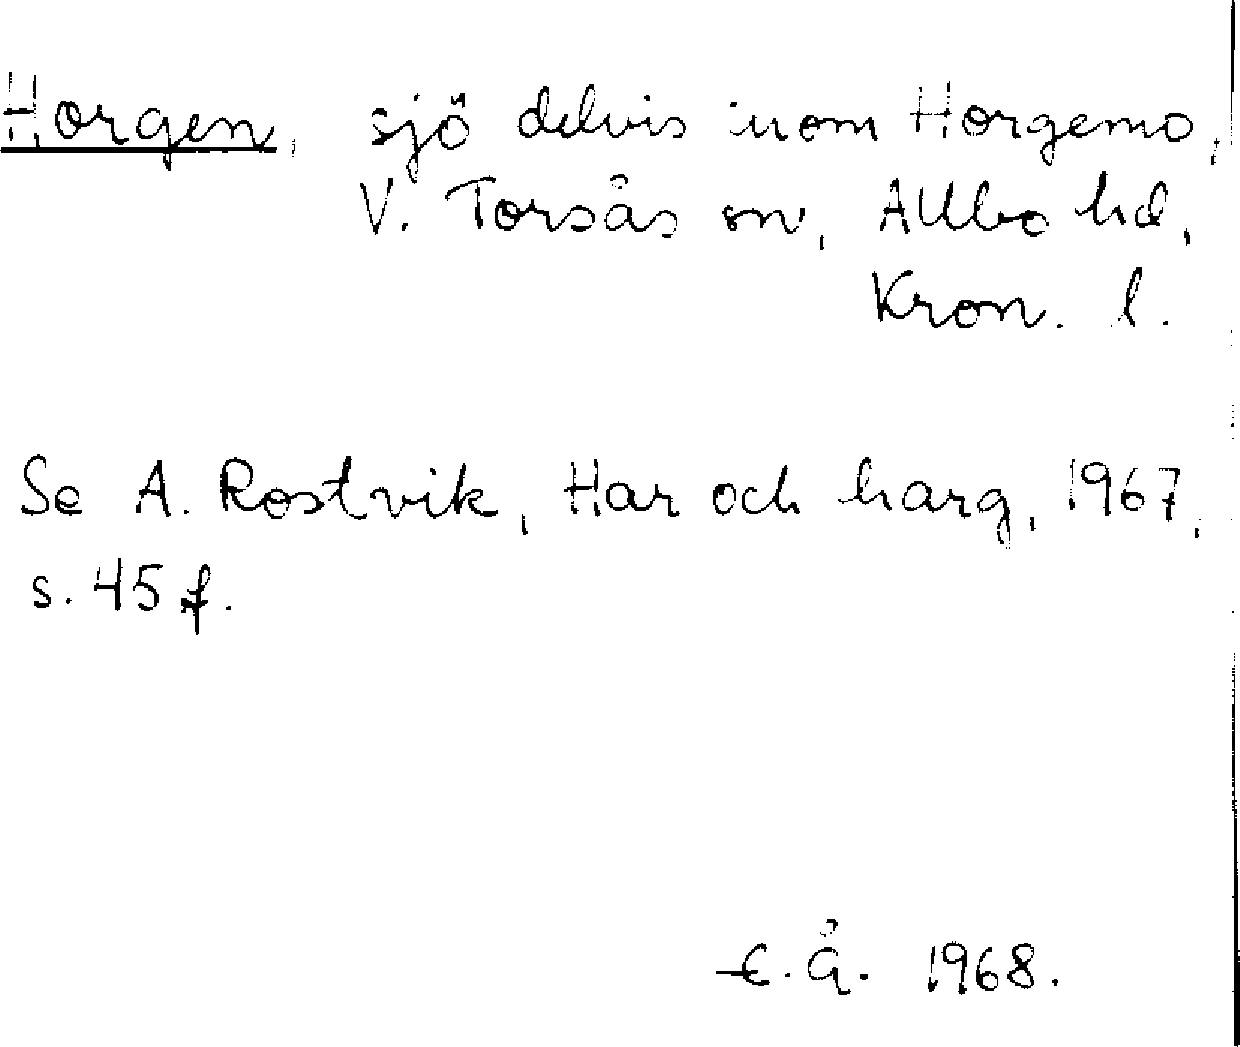 Horgen, sjö delvis inom Horgemo,
V. Torsås sn, Allbo hd,
Kron. l.
Se A. Rostvik, Har och harg, 1967,
s. 45 f.
E. Å. 1968.